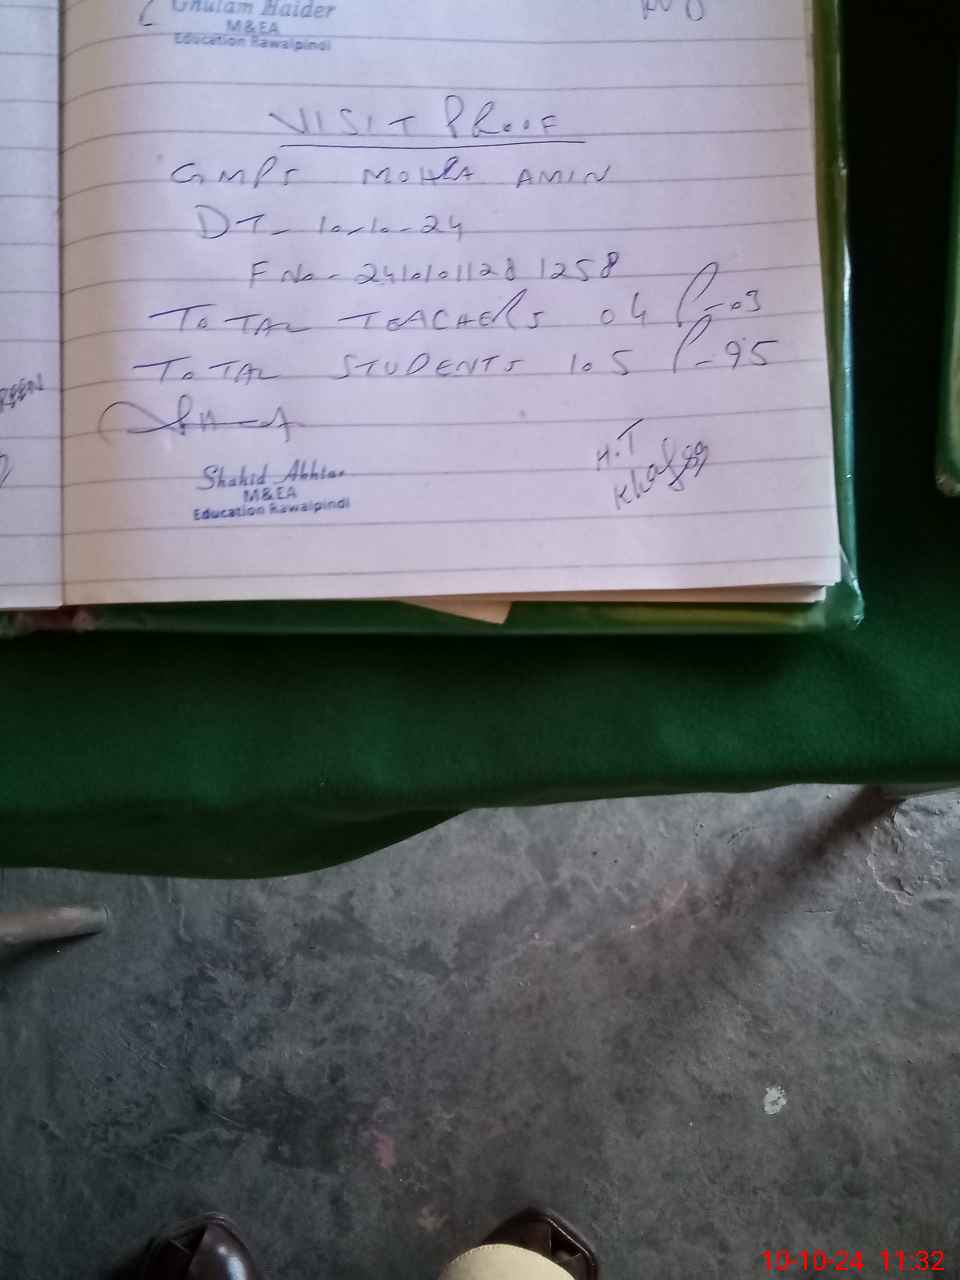 Ghulam Haider
M&EA
Education Rawalpindi
VISIT PROOF
GMPS MOHRA AMIN
DT- 10-10-24
F No- 2410101128 1258
TOTAL TEACHERS 04 P-03
TOTAL STUDENTS 105 P-95
Shahid Akhtar
M&EA
Education Rawalpindi
H.T
10-10-24 11:32